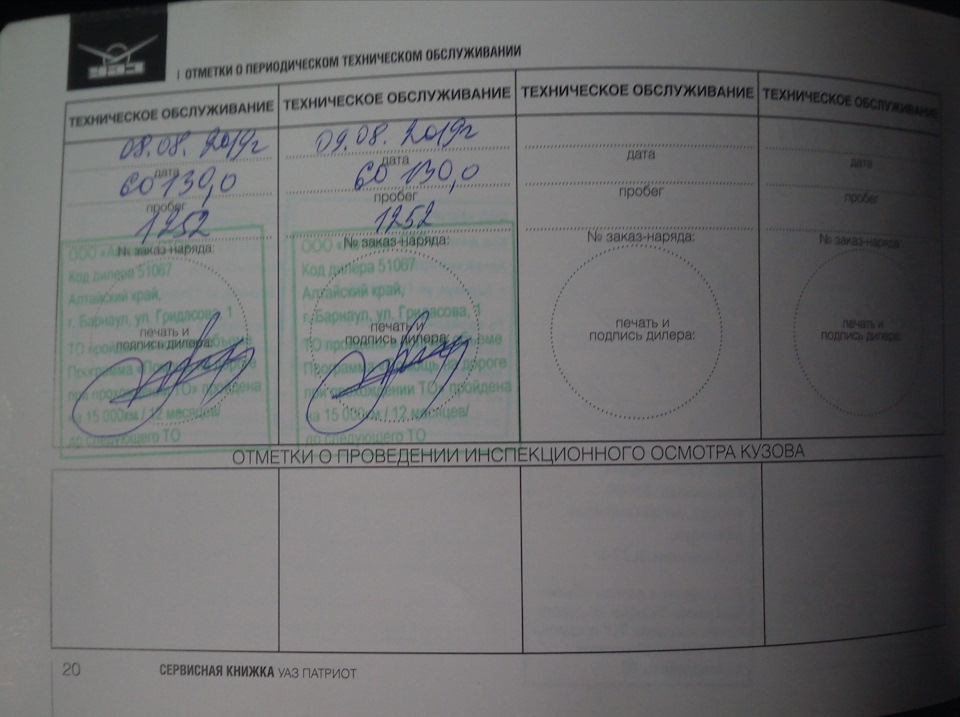 УАЗ
| ОТМЕТКИ О ПЕРИОДИЧЕСКОМ ТЕХНИЧЕСКОМ ОБСЛУЖИВАНИИ
ТЕХНИЧЕСКОЕ ОБСЛУЖИВАНИЕ
08.08.2019г
дата
60 130,0
пробег
1252
№ заказ-наряда:
ООО
Код дилера 51067
Алтайский край,
г. Барнаул, ул. Гридасова, 1
печать и
подпись дилера:
ТО пройдено объеме
Программа «Помощь на дороге
при прохождении ТО» пройдена
на 15 000км / 12 месяцев/
до следующего ТО
ТЕХНИЧЕСКОЕ ОБСЛУЖИВАНИЕ
09.08.2019г
дата
60 130,0
пробег
1252
№ заказ-наряда:
ООО
Код дилера 51067
Алтайский край,
г. Барнаул, ул. Гридасова, 1
печать и
подпись дилера:
ТО пройдено объеме
Программа «Помощь на дороге
при прохождении ТО» пройдена
на 15 000км / 12 месяцев/
до следующего ТО
ТЕХНИЧЕСКОЕ ОБСЛУЖИВАНИЕ
дата
пробег
№ заказ-наряда:
печать и
подпись дилера:
ТЕХНИЧЕСКОЕ ОБСЛУЖИВАНИЕ
дата
пробег
№ заказ-наряда:
печать и
подпись дилера:
ОТМЕТКИ О ПРОВЕДЕНИИ ИНСПЕКЦИОННОГО ОСМОТРА КУЗОВА
20 СЕРВИСНАЯ КНИЖКА УАЗ ПАТРИОТ